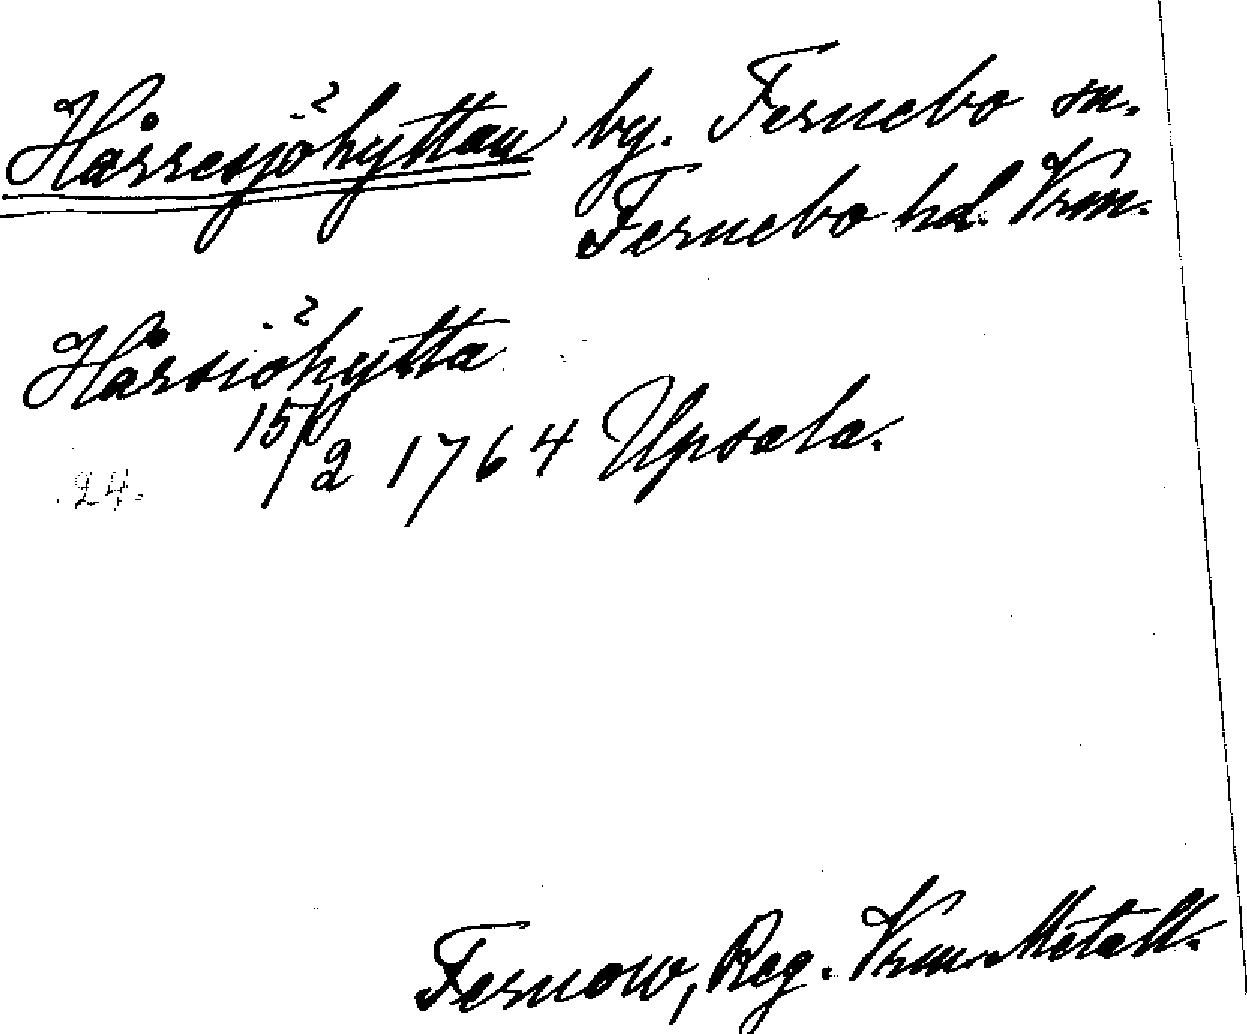 Hårresjöhyttan by. Fernebo sn.
Fernebo hd. Vrm.
Hårsiöhytta
15/2 1764 Upsala.
24.
Fernow, Reg. Vrm. Metall.